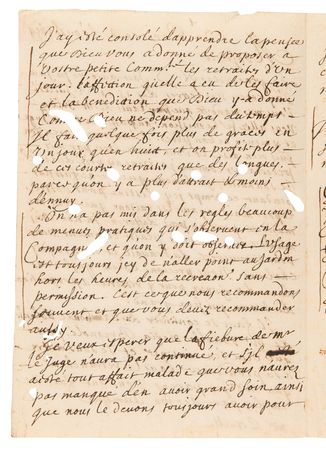 J'ay esté consolé d'apprendre la pensée
que Dieu vous a donné de proposer a
vostre petite Comm.té les retraits d'Un
jour. l'affection qu'elle a eu de les faire
et la benediction que Dieu y a donné
Comme Dieu ne depend pas du temps
Il fait quelque fois plus de graces en
Un jour qu'en huit, et on profite plus
de ces courts retraits que des longues,
parce quon y a plus d'attrait & moins
d'ennuy.
On na pas mis dans les regles beaucoup
de menues pratiques qui s'observent en la
Compagnie, et quon y doit observer. L'usage
est toujours icy de n'aller point au jardin
hors les heures de la recreaon sans
permission. C'est ce que nous recommandons
souvent et que vous devez recommander
aussy
Je veux esperer que la fiebure de mr
le Juge n'aura pas continué, et s'il
a esté tout affait malade que vous naurez
pas manqué d'en avoir grand soin ainsi
que nous le devons toujours avoir pour